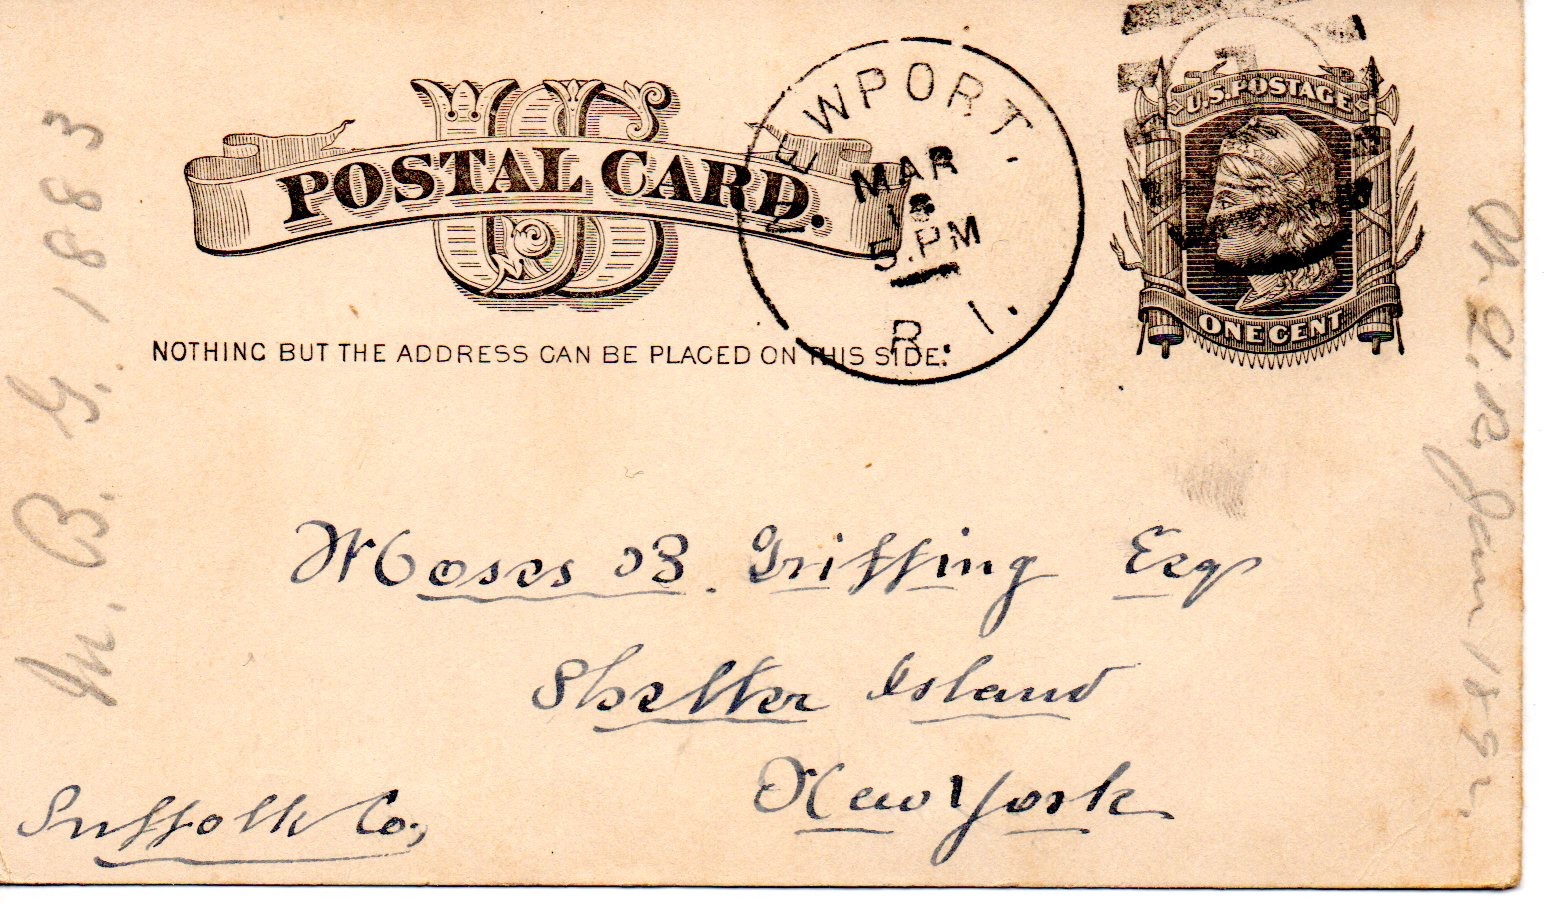 US
POSTAL CARD.
NEWPORT.
MAR
5.PM
R.I.
U.S. POSTAGE
ONE CENT
NOTHING BUT THE ADDRESS CAN BE PLACED ON THIS SIDE.
Moses B. Griffing Esq
Shelter Island
New York
Suffolk Co.,
M. B. G. 1883
Jan 189